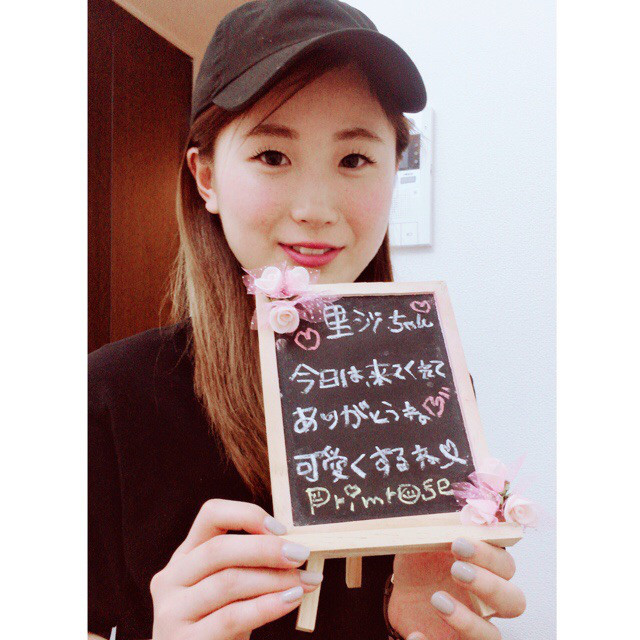 里沙ちゃん
今日は、来てくれて
ありがとうね
可愛くするね
Primrose